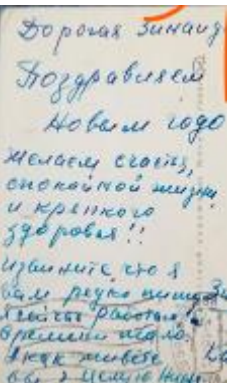 Дорогая Зинаид
Поздравляем
Новым годо
желаем счастья,
спокойной жизни
и крепкого
здоровья!!
извините что я
вам редко пишу
работаю
времени мало
как живёте
вы